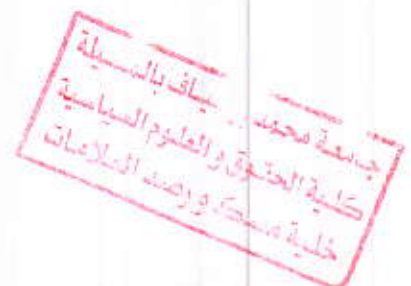 جامعة محمد بوضياف بالمسيلة
كلية الحقوق والعلوم السياسية
خلية مسك و رصد العلامات